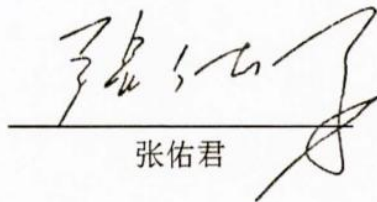 张佑君
张佑君